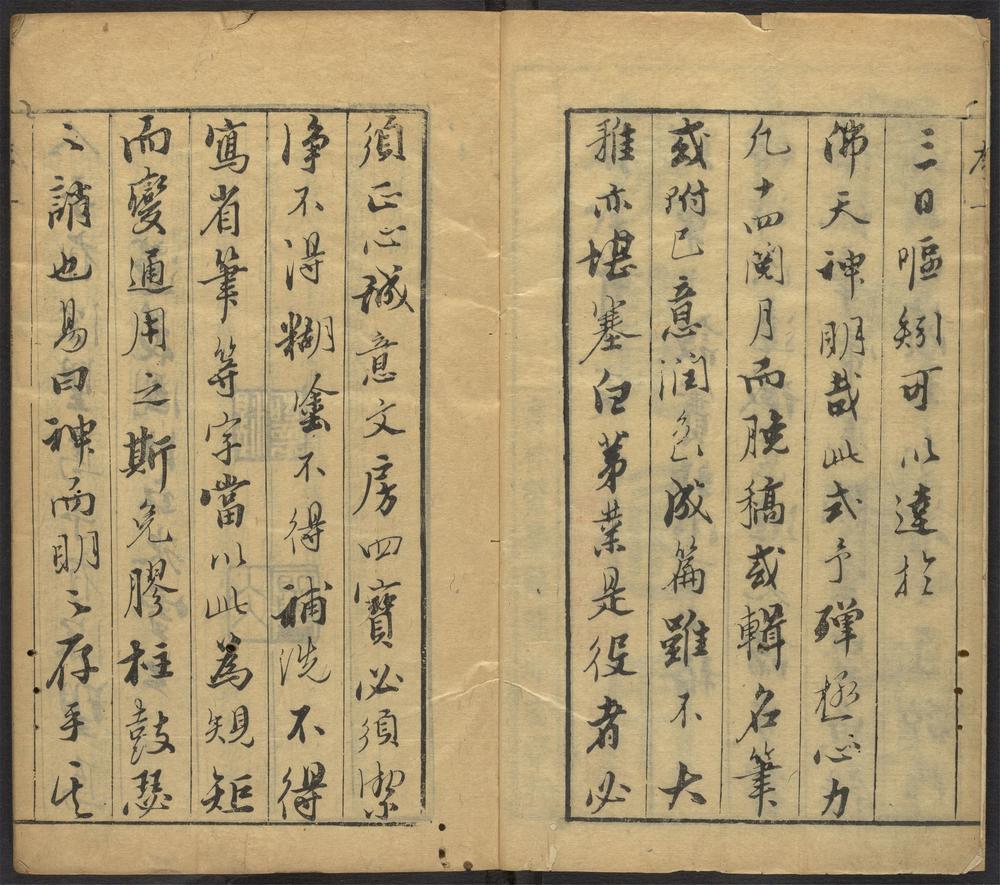 三日嘔矧可以達於
佛天神明哉此式予殫極心力
凡十四閱月而脫稿或輯名筆
或附己意潤色成篇雖不大
雅亦堪塞白第業是役者必
須正心誠意文房四寶必須潔
淨不得糊塗不得補洗不得
寫省筆等字當以此為規矩
而變通用之斯免膠柱鼓瑟
之誚也易曰神而明之存乎其